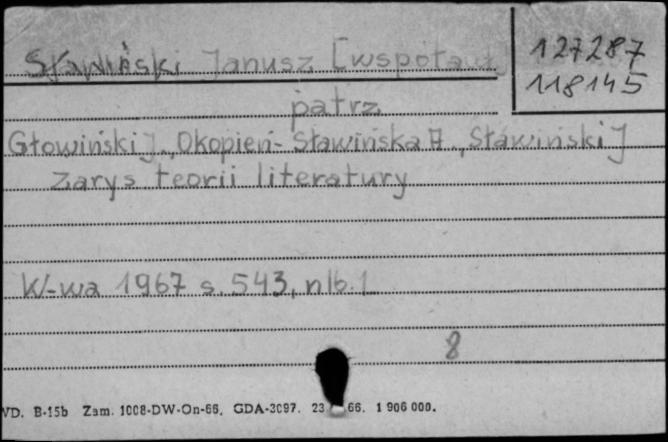 Sławiński Janusz [współau
127287
118145
patrz
Głowiński J., Okopień-Sławińska A., Sławiński J
Zarys teorii literatury
W-wa 1967 s. 543, nlb. 1
8
VD. B-15b Zam. 1008-DW-On-66. GDA-3097. 23 66. 1 906 000.